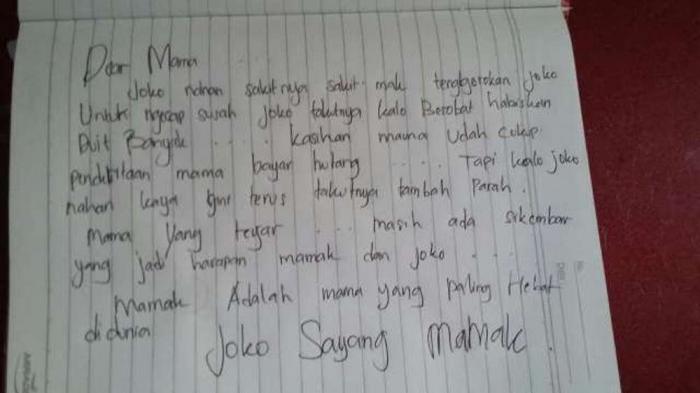 Dear Mama
Joko nahan sakitnya sakit mak tenggorokan joko
Untuk ngecap susah joko takutnya kalo Berobat habiskan
Duit Banyak .... kasihan mama udah cukup
penderitaan mama bayar hutang .... Tapi kalo joko
nahan kaya gini terus takutnya tambah Parah.
Mama Yang tegar ... masih ada sikembar
yang jadi harapan mamak dan joko ...
Mamak Adalah mama yang paling Hebat
di dunia
Joko Sayang mamak.